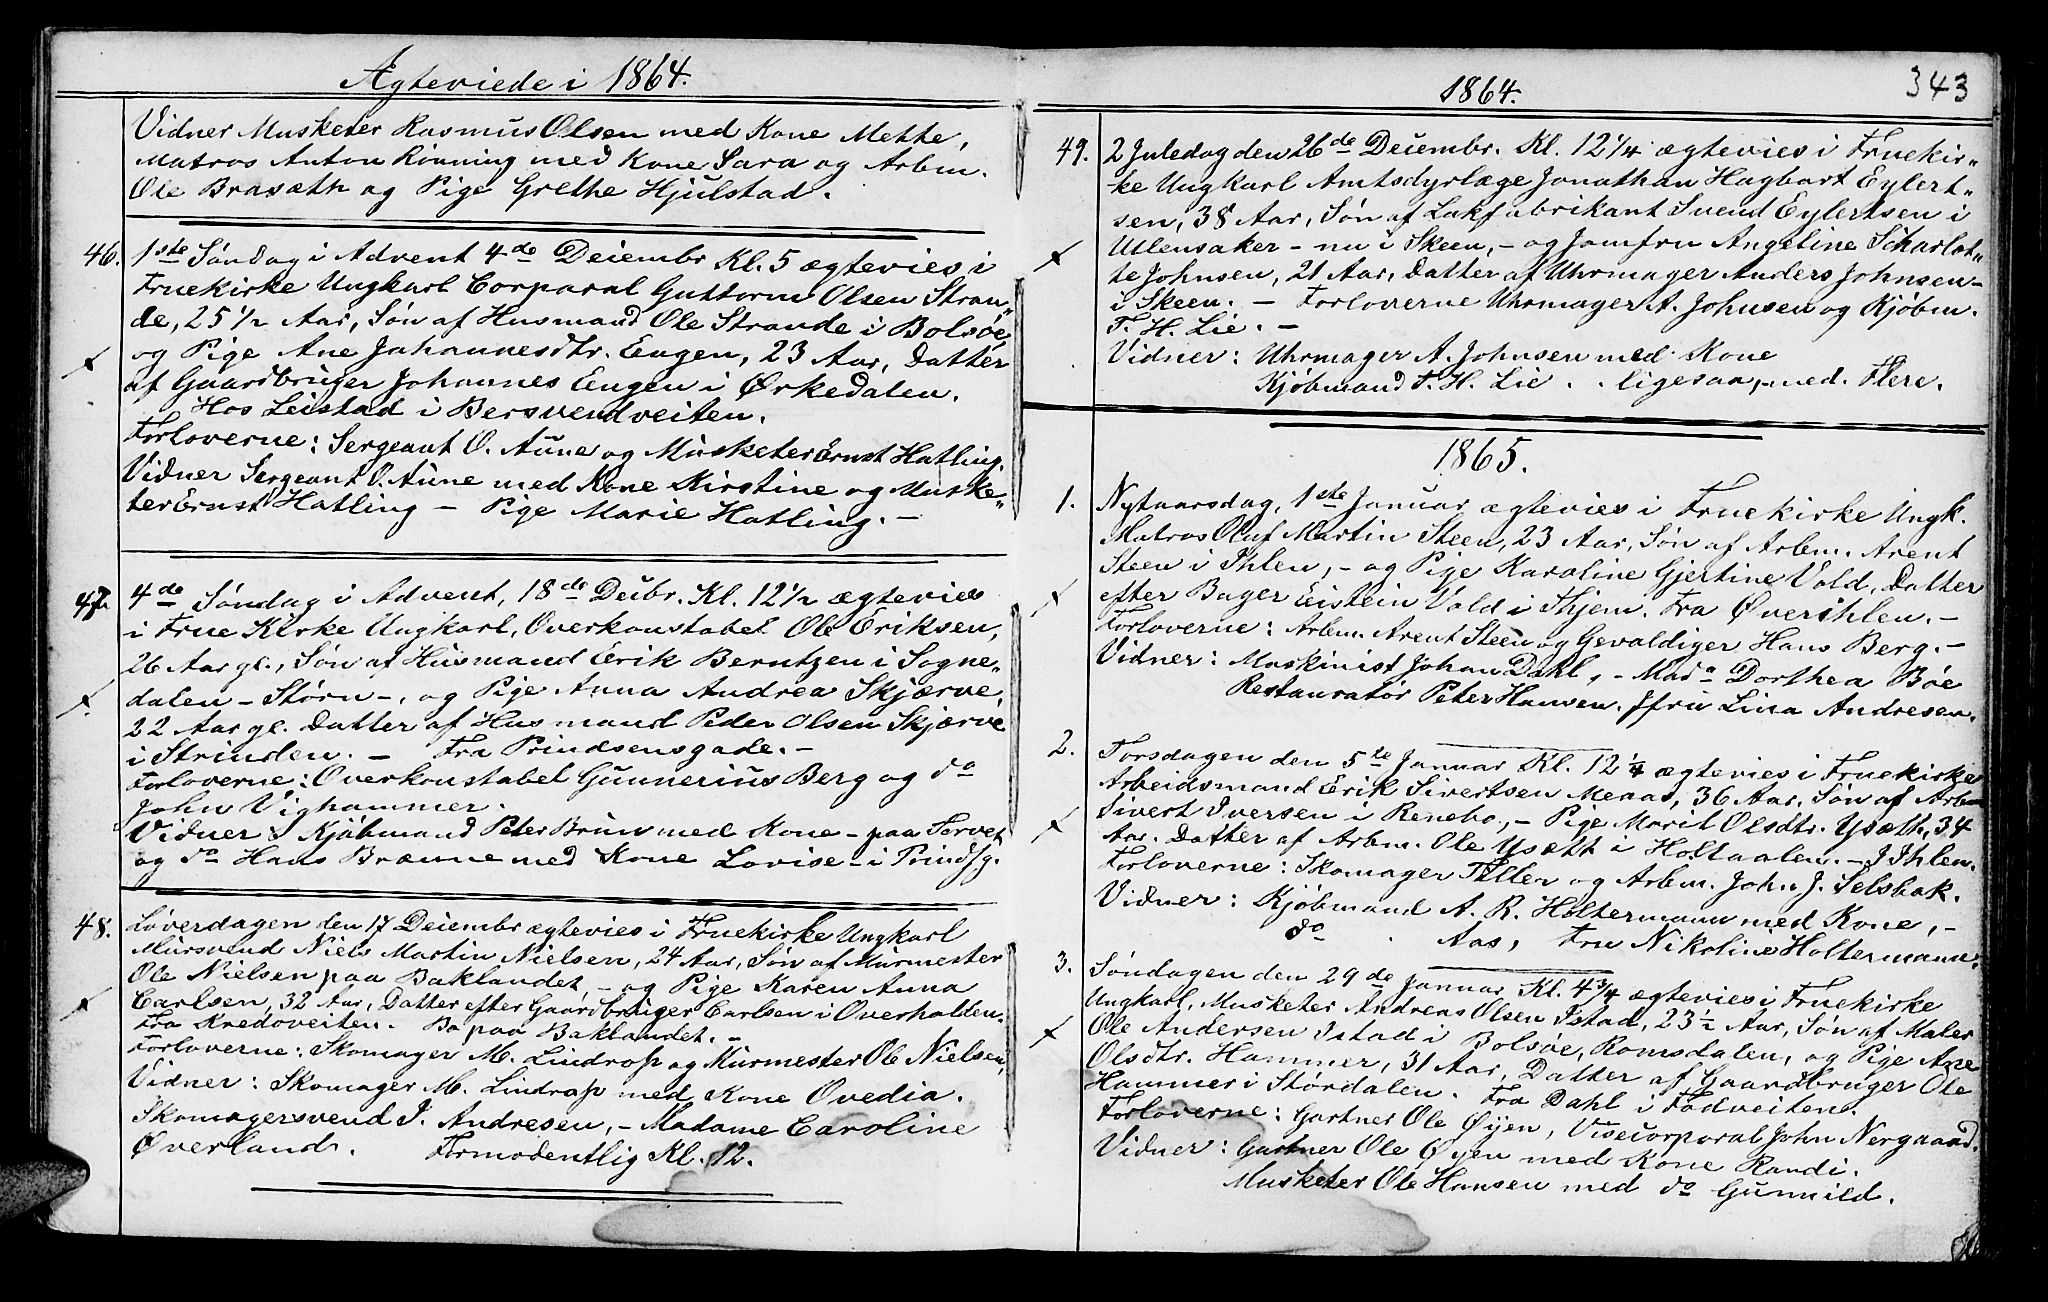 Ægteviede i 1864.
Vidner Musketer Rasmus Olsen med Kone Mette,
Matros Anton Rönning med Kone Sara og Arbm.
Ole Brasæth og Pige Grethe Hjulstad.
46. 1ste Söndag i Advent 4de Deiembr Kl. 5 ægtevies i
Fruekirke Ungkarl Corporal Guttorm Olsen Stran„
de, 25 1/2 Aar, Søn af Husmand Ole Strande i Bolsöe
og Pige Ane Johannesdtr. Eugen, 23 Aar, Datter
af Gaardbruger Johannes Eugen i Ørkedalen.
Hos Leistad i Bersvendveiten.
Forloverne: Sergeant O. Aune og Musketer Ernst Hatling.
Vidner Sergeant O. Aune med Kone Kirstine og Muske„
ter Ernst Hatling – Pige Marie Hatling. –
47. 4de Söndag i Advent, 18de Deibr. Kl. 12 1/2 ægtevies
i Frue Kirke Ungkarl, Overkonstabel Ole Eriksen,
26 Aar gl., Søn af Husmand Erik Berntzen i Sogne„
dalen – Störn –, og Pige Anna Andrea Skjærve,
22 Aar gl. Datter af Husmand Peder Olsen Skjærve
i Strinden. – Fra Prindsensgade. –
Forloverne: Overkonstabel Gunnerius Berg og do
John Vighammer.
Vidner: Kjøbmand Peter Brun med Kone – paa Torvet
og do Hans Brænne med Kone Lovise – i Prindsg.
48. Löverdagen den 17 Deiembr ægtevies i Fruekirke Ungkarl
Mursvend Niels Martin Nielsen, 24 Aar, Søn af Murmester
Ole Nielsen paa Baklandet, – og Pige Karen Anna
Carlsen, 32 Aar, Datter efter Gaardbruger Carlsen i Overhalden.
Fra Kredoveiten. Bo paa Baklandet. –
Forloverne: Skomager M. Lindrop og Murmester Ole Nielsen,
Vidner: Skomager M. Lindrop med Kone Ovedia.
Skomagersvend J. Andresen, – Madame Caroline
Øverland. Formodentlig Kl. 12.
1864. 343
49. 2 Juledag den 26de Deiembr. Kl. 12 1/4 ægtevies i Fruekir„
ke Ungkarl Amtsdyrlæge Jonathan Hagbart Eylert„
sen, 38 Aar, Søn af Lakfabrikant Svend Eylertsen i
Ullensaker – nu i Skeen, – og Jomfru Angeline Scharlot„
te Johnsen, 21 Aar, Datter af Uhrmager Anders Johnsen –
i Skeen. – Forloverne Uhrmager A. Johnsen og Kjøbm.
T. H. Lie. –
Vidner: Uhrmager A. Johnsen med Kone
Kjøbmand T. H. Lie . . ligesaa, – med Flere.
1865.
1. Nytaarsdag, 1ste Januar ægtevies i Fruekirke Ungk.
Matros Oluf Martin Steen, 23 Aar, Søn af Arbm. Arent
Steen i Ihlen, – og Pige Karoline Gjertine Vold, Datter
efter Bager Eistein Vold i Thjem. Fra Øverihlen. –
Forloverne: Arbm. Arent Steen og Gevaldiger Hans Berg. –
Vidner: Maskinist Johan Dahl, – Mada Dorthea Böe
Restauratör Peter Hansen. Jfru Lina Andresen.
2. Torsdagen den 5te Januar Kl. 12 1/4 ægtevies i Fruekirke
Arbeidsmand Erik Sivertsen Menas, 36 Aar. Søn af Arbm
Sivert Iversen i Renebo, – Pige Marit Olsdtr. Ysæth, 34
Aar. Datter af Arbm. Ole Ysætt i Holtaalen. – I Ihlen.
Forloverne: Skomager Tiller og Arbm. John J. Selsbak.
Vidner: Kjøbmand A. R. Holtermann med Kone, –
do . Aas, Fru Nikoline Holtermann.
3. Söndagen den 29de Januar Kl. 4 3/4 ægtevies i Fruekirke
Ungkarl, Musketer Andreas Olsen Istad, 23 1/2 Aar, Søn af Maler
Ole Andersen Istad i Bolsöe, Romsdalen, og Pige Ane
Olsdtr. Hammer, 31 Aar, Datter af Gaardbruger Ole
Hammer i Stördalen. Fra Dahl i Fodveiten.
Forloverne: Gartner Ole Øyen, Visecorporal John Nergaard.
Vidner: Gartner Ole Øyen med Kone Randi.
Musketer Ole Hansen med do Gunnild.